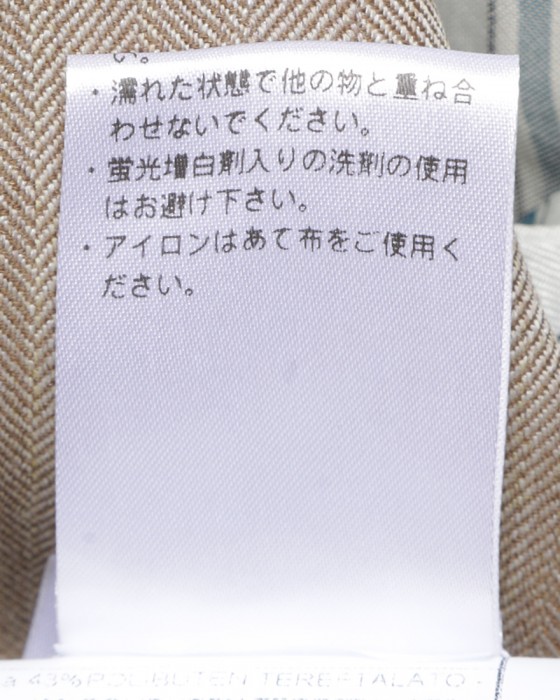 い。
・濡れた状態で他の物と重ね合
わせないでください。
・蛍光増白剤入りの洗剤の使用
はお避け下さい。
・アイロンはあて布をご使用く
ださい。
43%